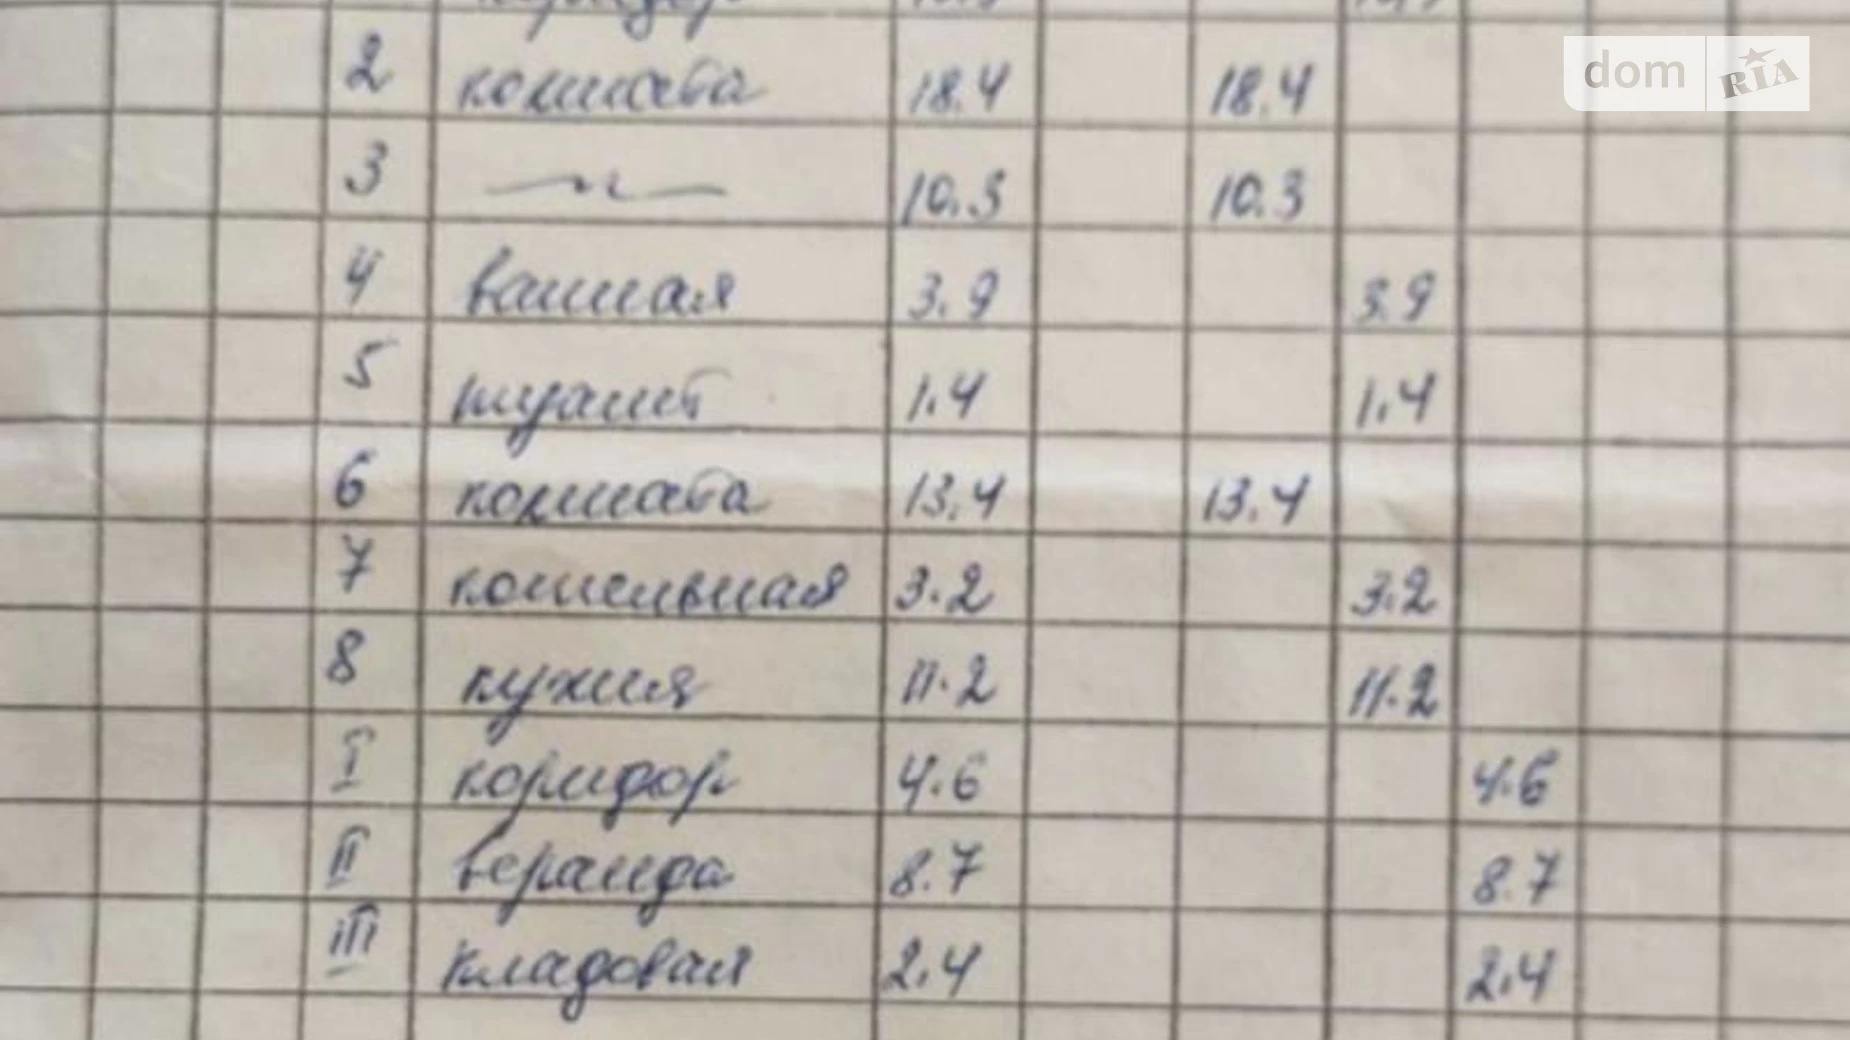 коридор
dom RIA
2 комната 18.4 18.4
3 —"— 10.3 10.3
4 ванная 3.9 3.9
5 туалет 1.4 1.4
6 комната 13.4 13.4
7 котельная 3.2 3.2
8 кухня 11.2 11.2
I коридор 4.6 4.6
II веранда 8.7 8.7
III кладовая 2.4 2.4